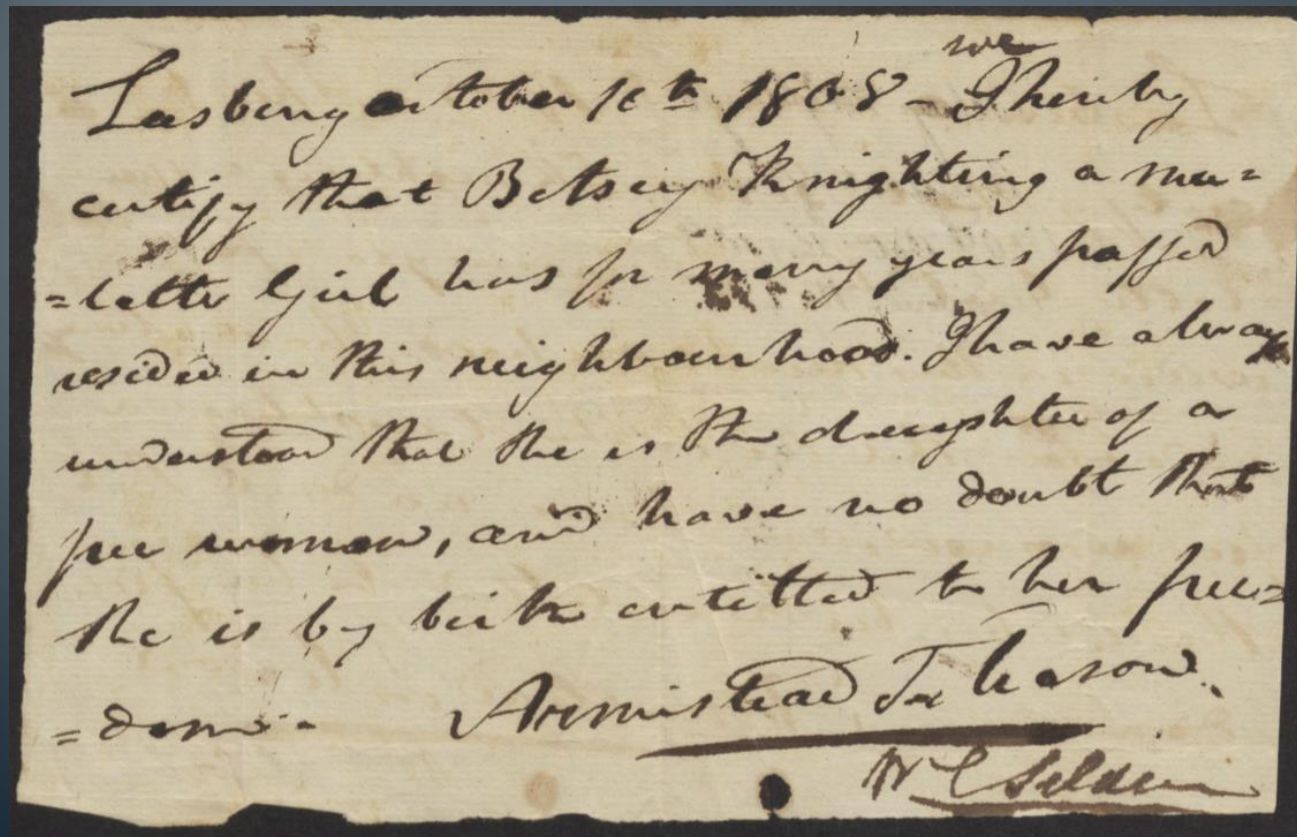 we
Leesburg October 10th 1808 - I hereby
certify that Betsey Knighting a mu=
=latto Girl has for many years passed
resided in this neighbourhood. I have always
understood that she is the daughter of a
free woman, and have no doubt that
she is by birth entitled to her free=
=dom.-  Armistead T. Mason.
Wm C Selden